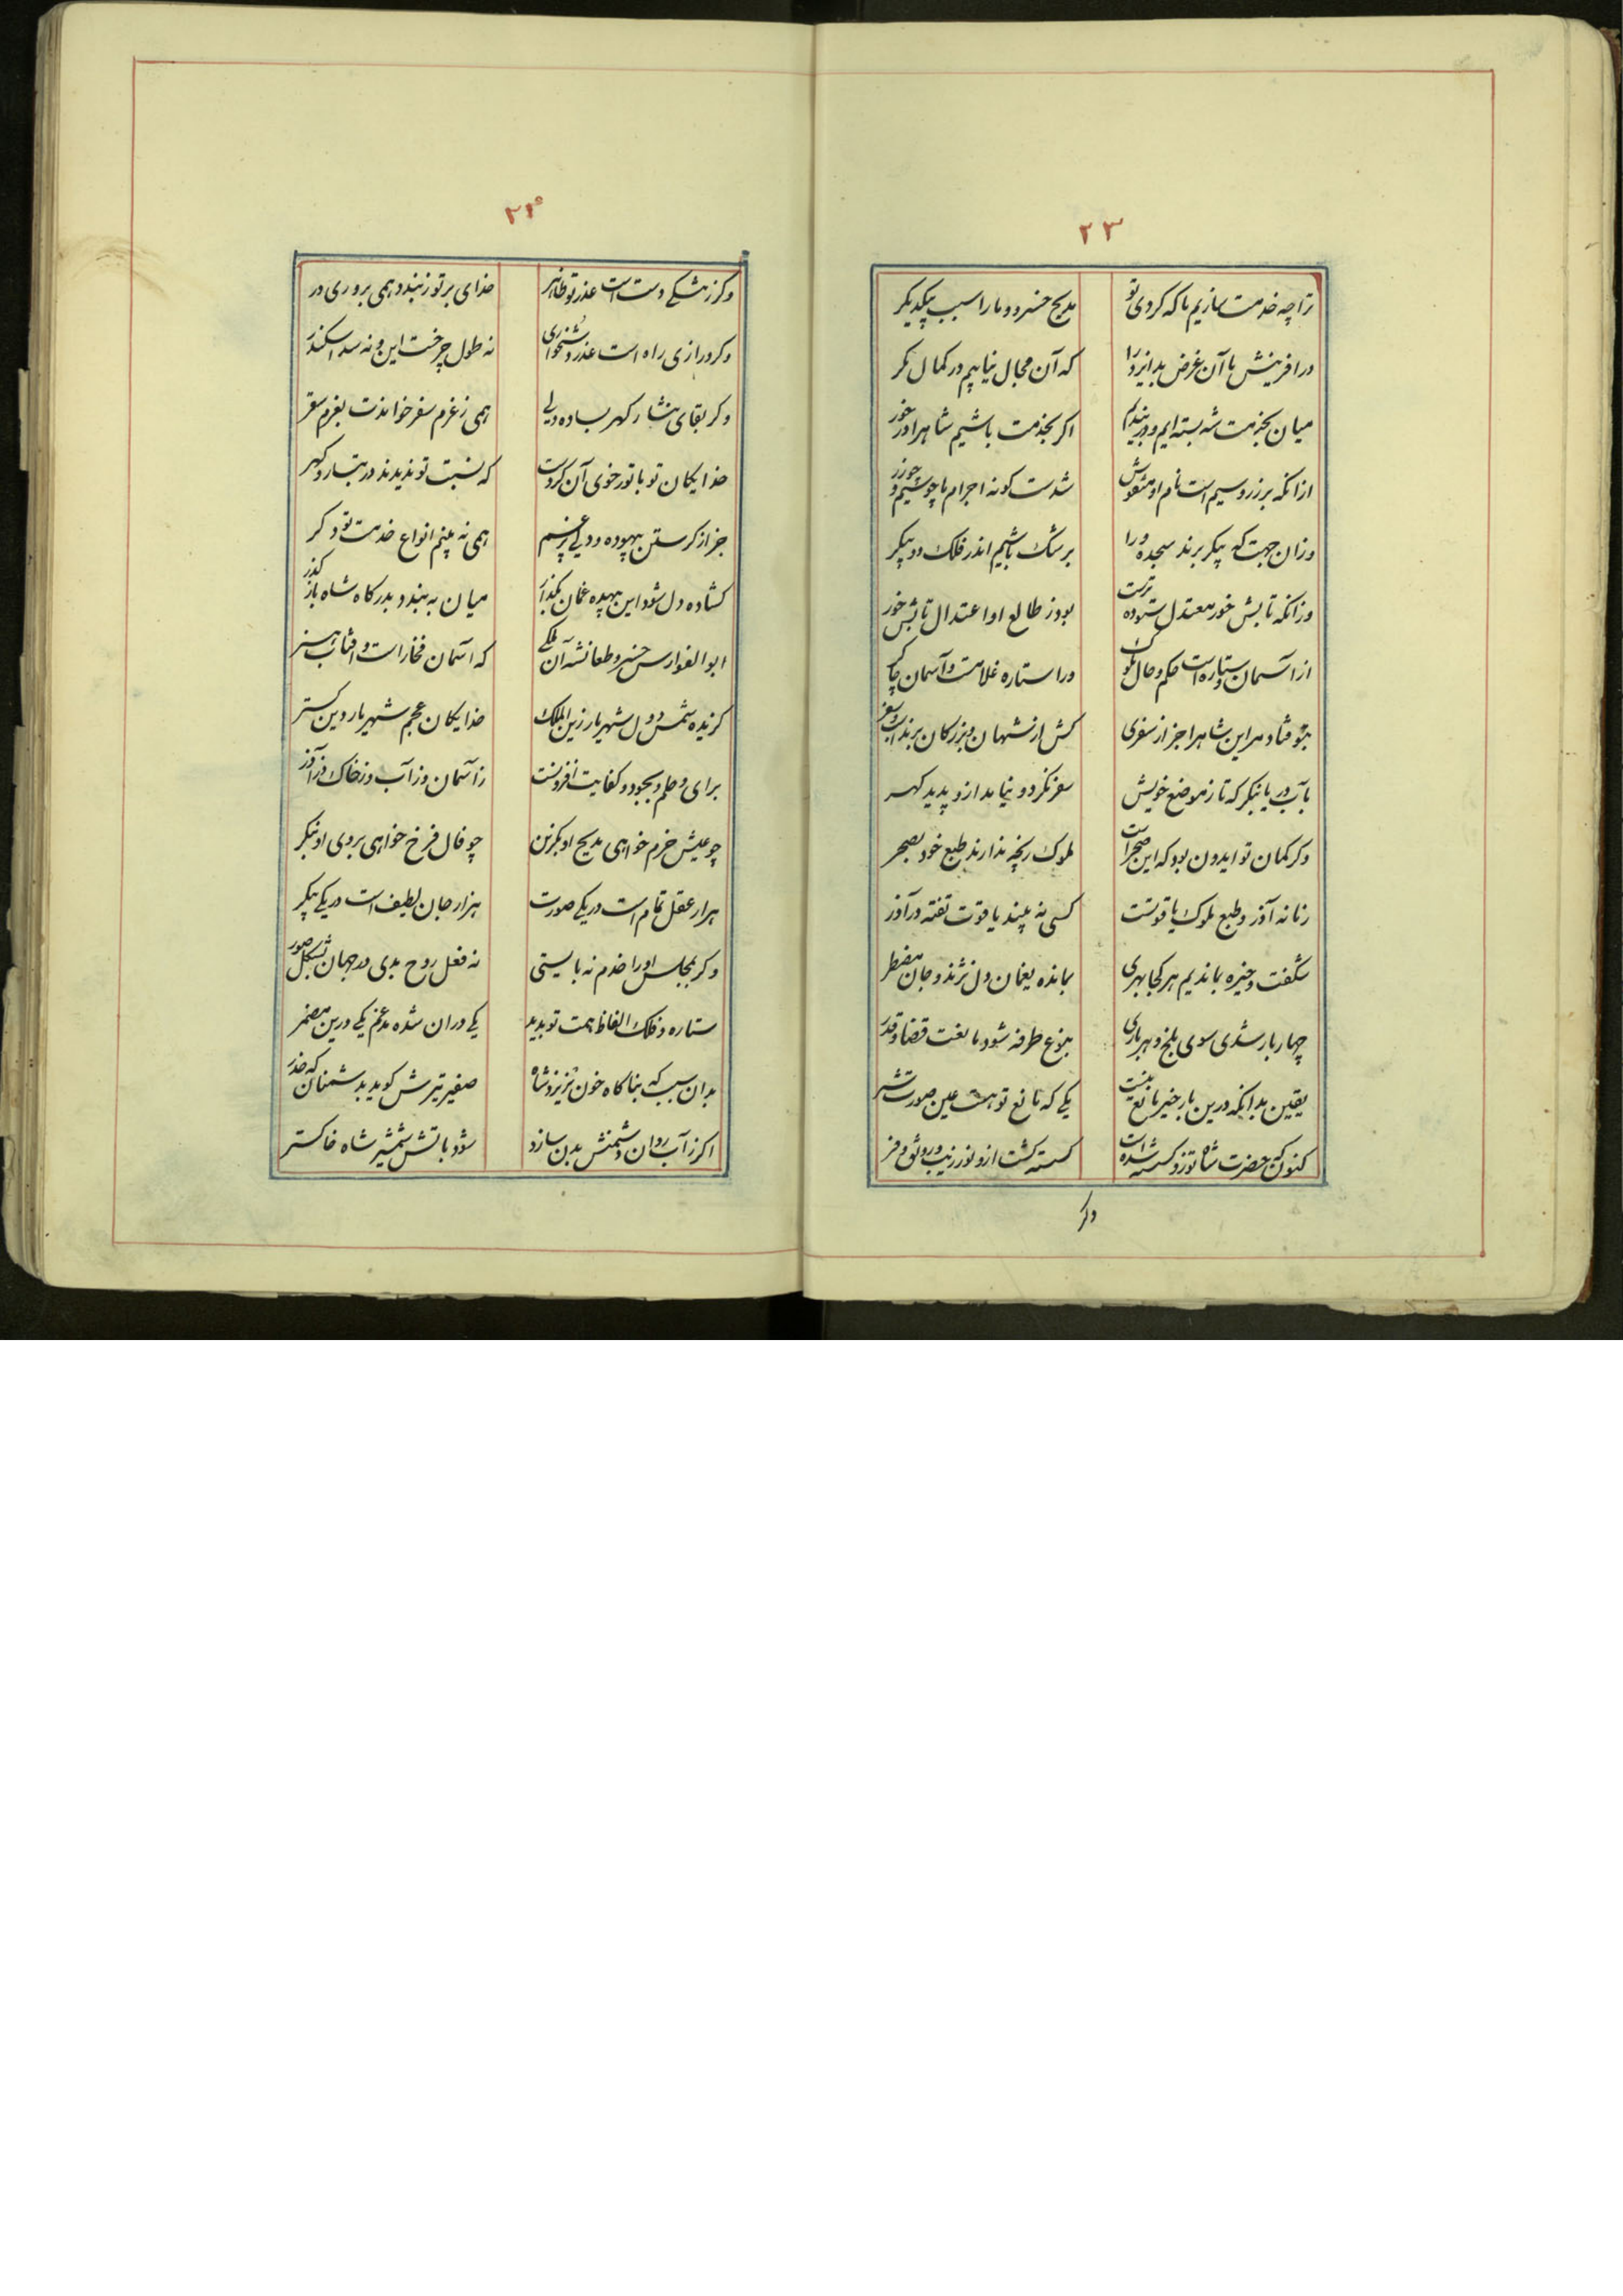 ۲۳
ترا چه خدمت سازیم ما که کردی تو
مدیح خسرو و ما را سبب بیکدیگر
در آفرینش ما آن غرض بد ایزد را
که آن مجال نیابیم در کمال نکر
میان بخدمت شه بسته ایم و در بندیم
اگر بخدمت باشیم شاه را در خور
ازانکه بر زر و سیم است نام او منقوش
شدست کونه اجرام ما چو سیم و چو زر
وزان جهت که پیکر برند سجده ورا
برشک باشیم اندر فلک دو پیکر
وزانکه تابش خور معتدل ستوده ترست
بود ز طالع او اعتدال تابش خور
از آسمان و ستاره است حکم و حال ملوک
ورا ستاره غلامست و آسمان چاکر
بتو فتاد مر این شاه را جز از سفری
کش از شهان و بزرکان برند اسب سفر
بآب دریا بنکر که تا ز موضع خویش
سفر نکرد و نیامد ازو پدید کهر
وکر کمان تو ایدون بود که این صحرا است
ملوک رنجه ندارند طبع خود بصحر
زمانه آذر و طبع ملوک یاقوتست
کسی نه بیند یاقوت تفته در آذر
شکفت و خیره بماندیم هر کجا بهری
بمانده یغمان دل نژند و جان مضطر
چهار بار شدی سوی بلخ و هر باری
بنوع طرفه شود مانعت قضا و قدر
یقین بدانکه درین بار خیر مانع نیست
یکی که مانع تو هست عین صورت شر
کنون که حضرت شاه تو زو کسسته شده است
کسسته کشت ازو نور زیب و رونق و فر
وکر
۲۴
وکر ز تشکی دست است عذر تو ظاهر
خدای بر تو نبندد همی بروری در
وکر درازی راه است عذر و دشخواری
نه طول چرخست این و نه سد اسکندر
وکر بقای نشار کهر بساده دلی
همی ز عزم سفر خواندت بغرم سقر
خدایکان تو با تو ز خوی آن کردست
که نسبت تو ندیدند در تبار و کهر
جز از کرستن بیهوده و دویی بر غم
همی نه بینم انواع خدمت تو دکر
کشاده دل شود این بیهده غمان بکذار
میان به بند و بدرکاه شاه باز کذر
ابوالفوارس خسرو طغانشه آن ملکی
که آسمان فخار است و آفتاب هنر
کزیده شمس دول شهریار زین الملک
خدایکان عجم شهریار دین کستر
برای و حلم و بجود و کفایت افزونست
ز آسمان وز آب وز خاک وز آذر
چو عیش خرم خواهی مدیح او بکزین
چو فال فرخ خواهی بروی او بنکر
هزار عقل تمام است در یکی صورت
هزار جان لطیف است در یکی پیکر
وکر بمجلس او را خدم نه بایستی
نه فعل روح بدی در جهان نه شکل صور
ستاره و فلک الفاظ همت تو بدید
یکی دران شده مدغم یکی درین مضمر
بدان سبب که بناکاه خون نریزد شاه
صفیر تیرش کوید بدشمنان که حذر
اکر ز آب روان دشمنش بدن سازد
شود باتش شمشیر شاه خاکستر